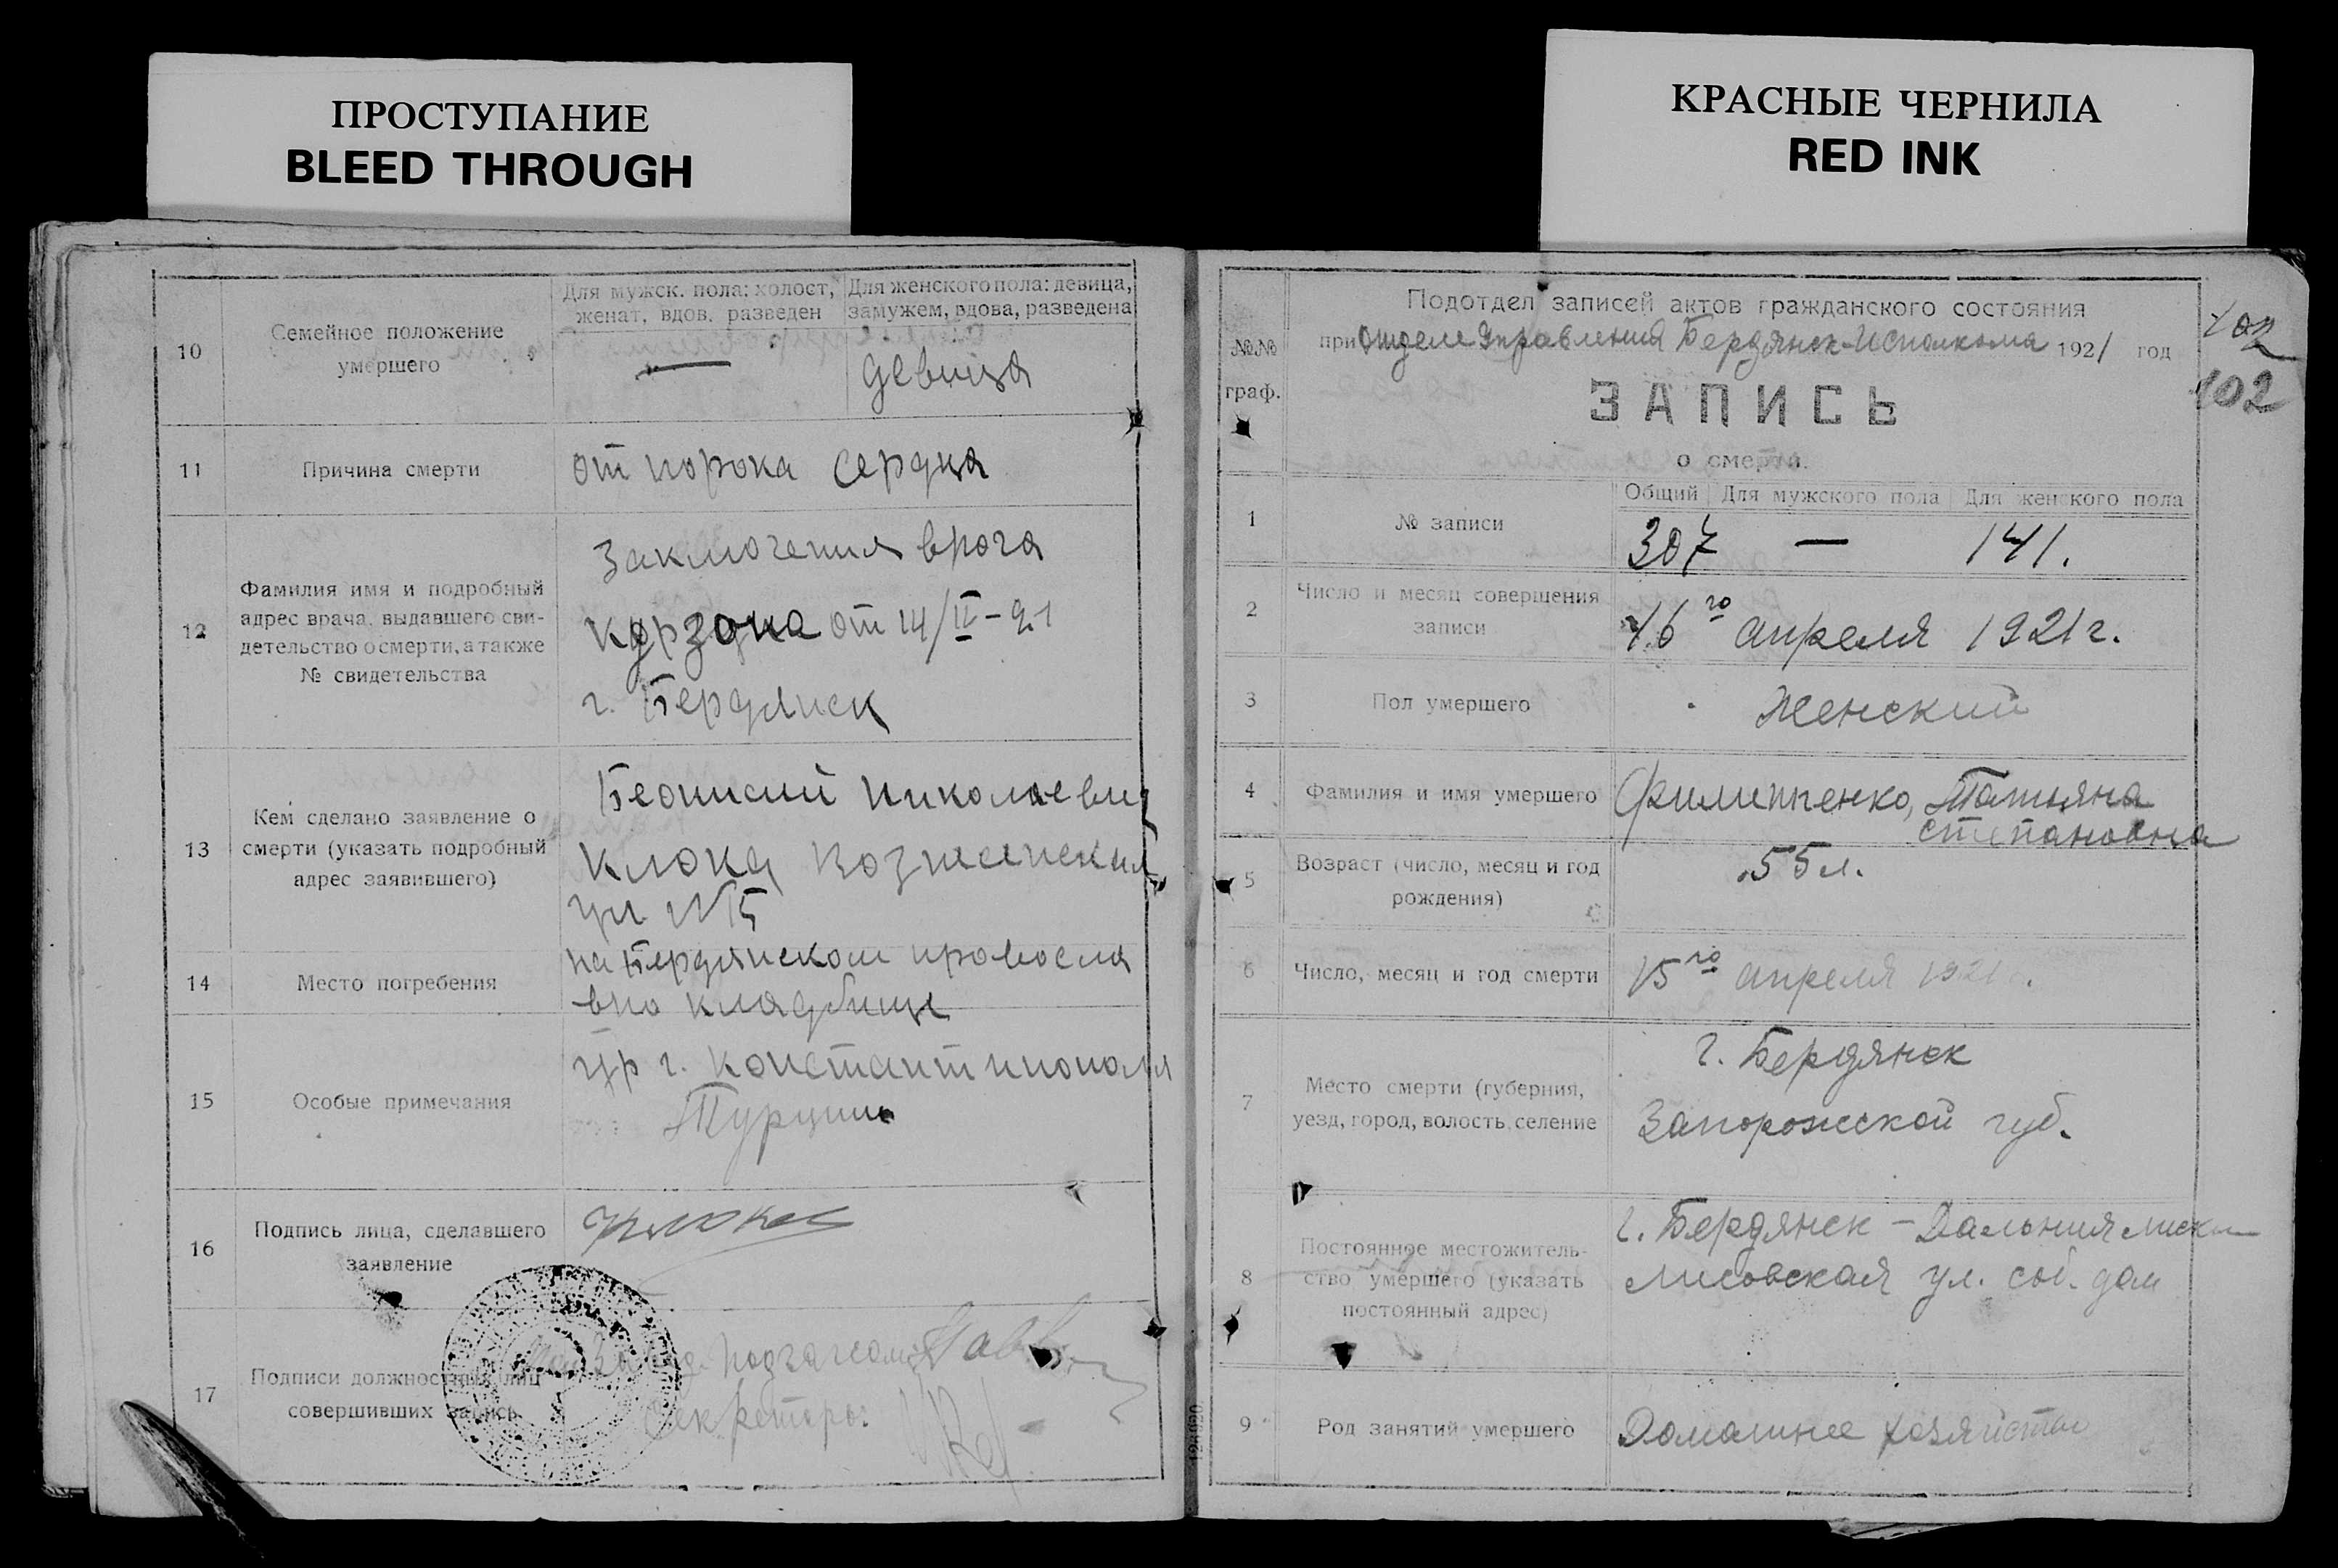 ПРОСТУПАНИЕ
BLEED THROUGH
КРАСНЫЕ ЧЕРНИЛА
RED INK
10
Семейное положение
умершего
Для мужск. пола: холост,
женат, вдов, разведен
Для женского пола: девица,
замужем, вдова, разведена
—
девица
11
Причина смерти
от порока сердца
12
Фамилия имя и подробный
адрес врача, выдавшего сви-
детельство о смерти, а также
№ свидетельства
Заключения врача
от 14/IV-21
г. Бердянск
13
Кем сделано заявление о
смерти (указать подробный
адрес заявившего)
Николаевич
Клока
ул N 15
14
Место погребения
на Бердянском правосла
вно кладбище
15
Особые примечания
гр г. Константинополя
Турции
16
Подпись лица, сделавшего
заявление
17
Подписи должностных лиц
совершивших запись
Секретарь:
№№
граф.
Подотдел записей актов гражданского состояния
при Отделе Управления Бердянск Исполкома 1921 год
102
102
ЗАПИСЬ
о смерти.
1
№ записи
Общий
Для мужского пола
Для женского пола
307 — 141.
2
Число и месяц совершения
записи
16го апреля 1921 г.
3
Пол умершего
Женский
4
Фамилия и имя умершего
Филипченко, Татьяна
Степановна
5
Возраст (число, месяц и год
рождения)
55 л.
6
Число, месяц и год смерти
15го апреля 1921.
7
Место смерти (губерния,
уезд, город, волость, селение
г. Бердянск
Запорожской губ.
8
Постоянное местожитель-
ство умершего (указать
постоянный адрес)
г. Бердянск –
Лисовская ул. соб. дом
9
Род занятий умершего
Домашнее хозяйство